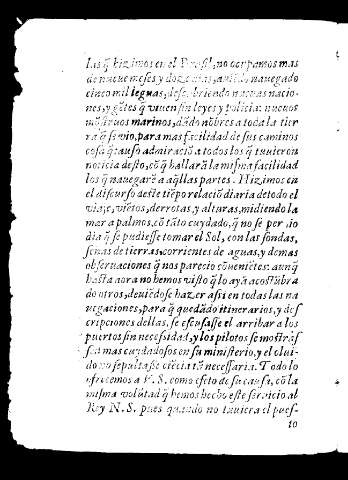 las q̃ hizimos en el Brasil, no ocupamos mas
de nueue meses y doze dias, auiẽdo nauegado
cinco mil leguas, descubriendo nueuas nacio-
nes, y gẽtes q̃ viuen sin leyes y policia: nueuos
mõstruos marinos, dãdo nõbres a toda la tier
ra q̃ se vio, para mas facilidad de sus caminos
cosa q̃ causo admiraciõ a todos los q̃ tuuieron
noticia desto, cõ q̃ hallarã la misma facilidad
los q̃ nauegarẽ a aq̃llas partes. Hizimos en
el discurso deste tiẽpo relaciõ diaria de todo el
viaje, viẽtos, derrotas, y alturas, midiendo la
mar a palmos, cõ tãto cuydado, q̃ no se perdio
dia q̃ se pudiesse tomar el Sol, con las sondas,
señas de tierras, corrientes de aguas, y demas
obseruaciones q̃ nos parecio cõueniẽtes: aunq̃
hasta aora no hemos visto q̃ lo ayã acostũbra
do otros, deuiẽdose hazer assi en todas las na
uegaciones, para q̃ quedãdo itinerarios, y des
cripciones dellas, se escusasse el arribar a los
puertos sin necessidad, y los pilotos se mostras
sen mas cuydadosos en su ministerio, y el olui-
do no sepultasse ciẽcia tã necessaria. Todo lo
ofrecemos a V. S. como efeto de su causa, cõ la
misma volũtad q̃ hemos hecho este seruicio al
Rey N. S. pues quando no tuuiera el pues-
to